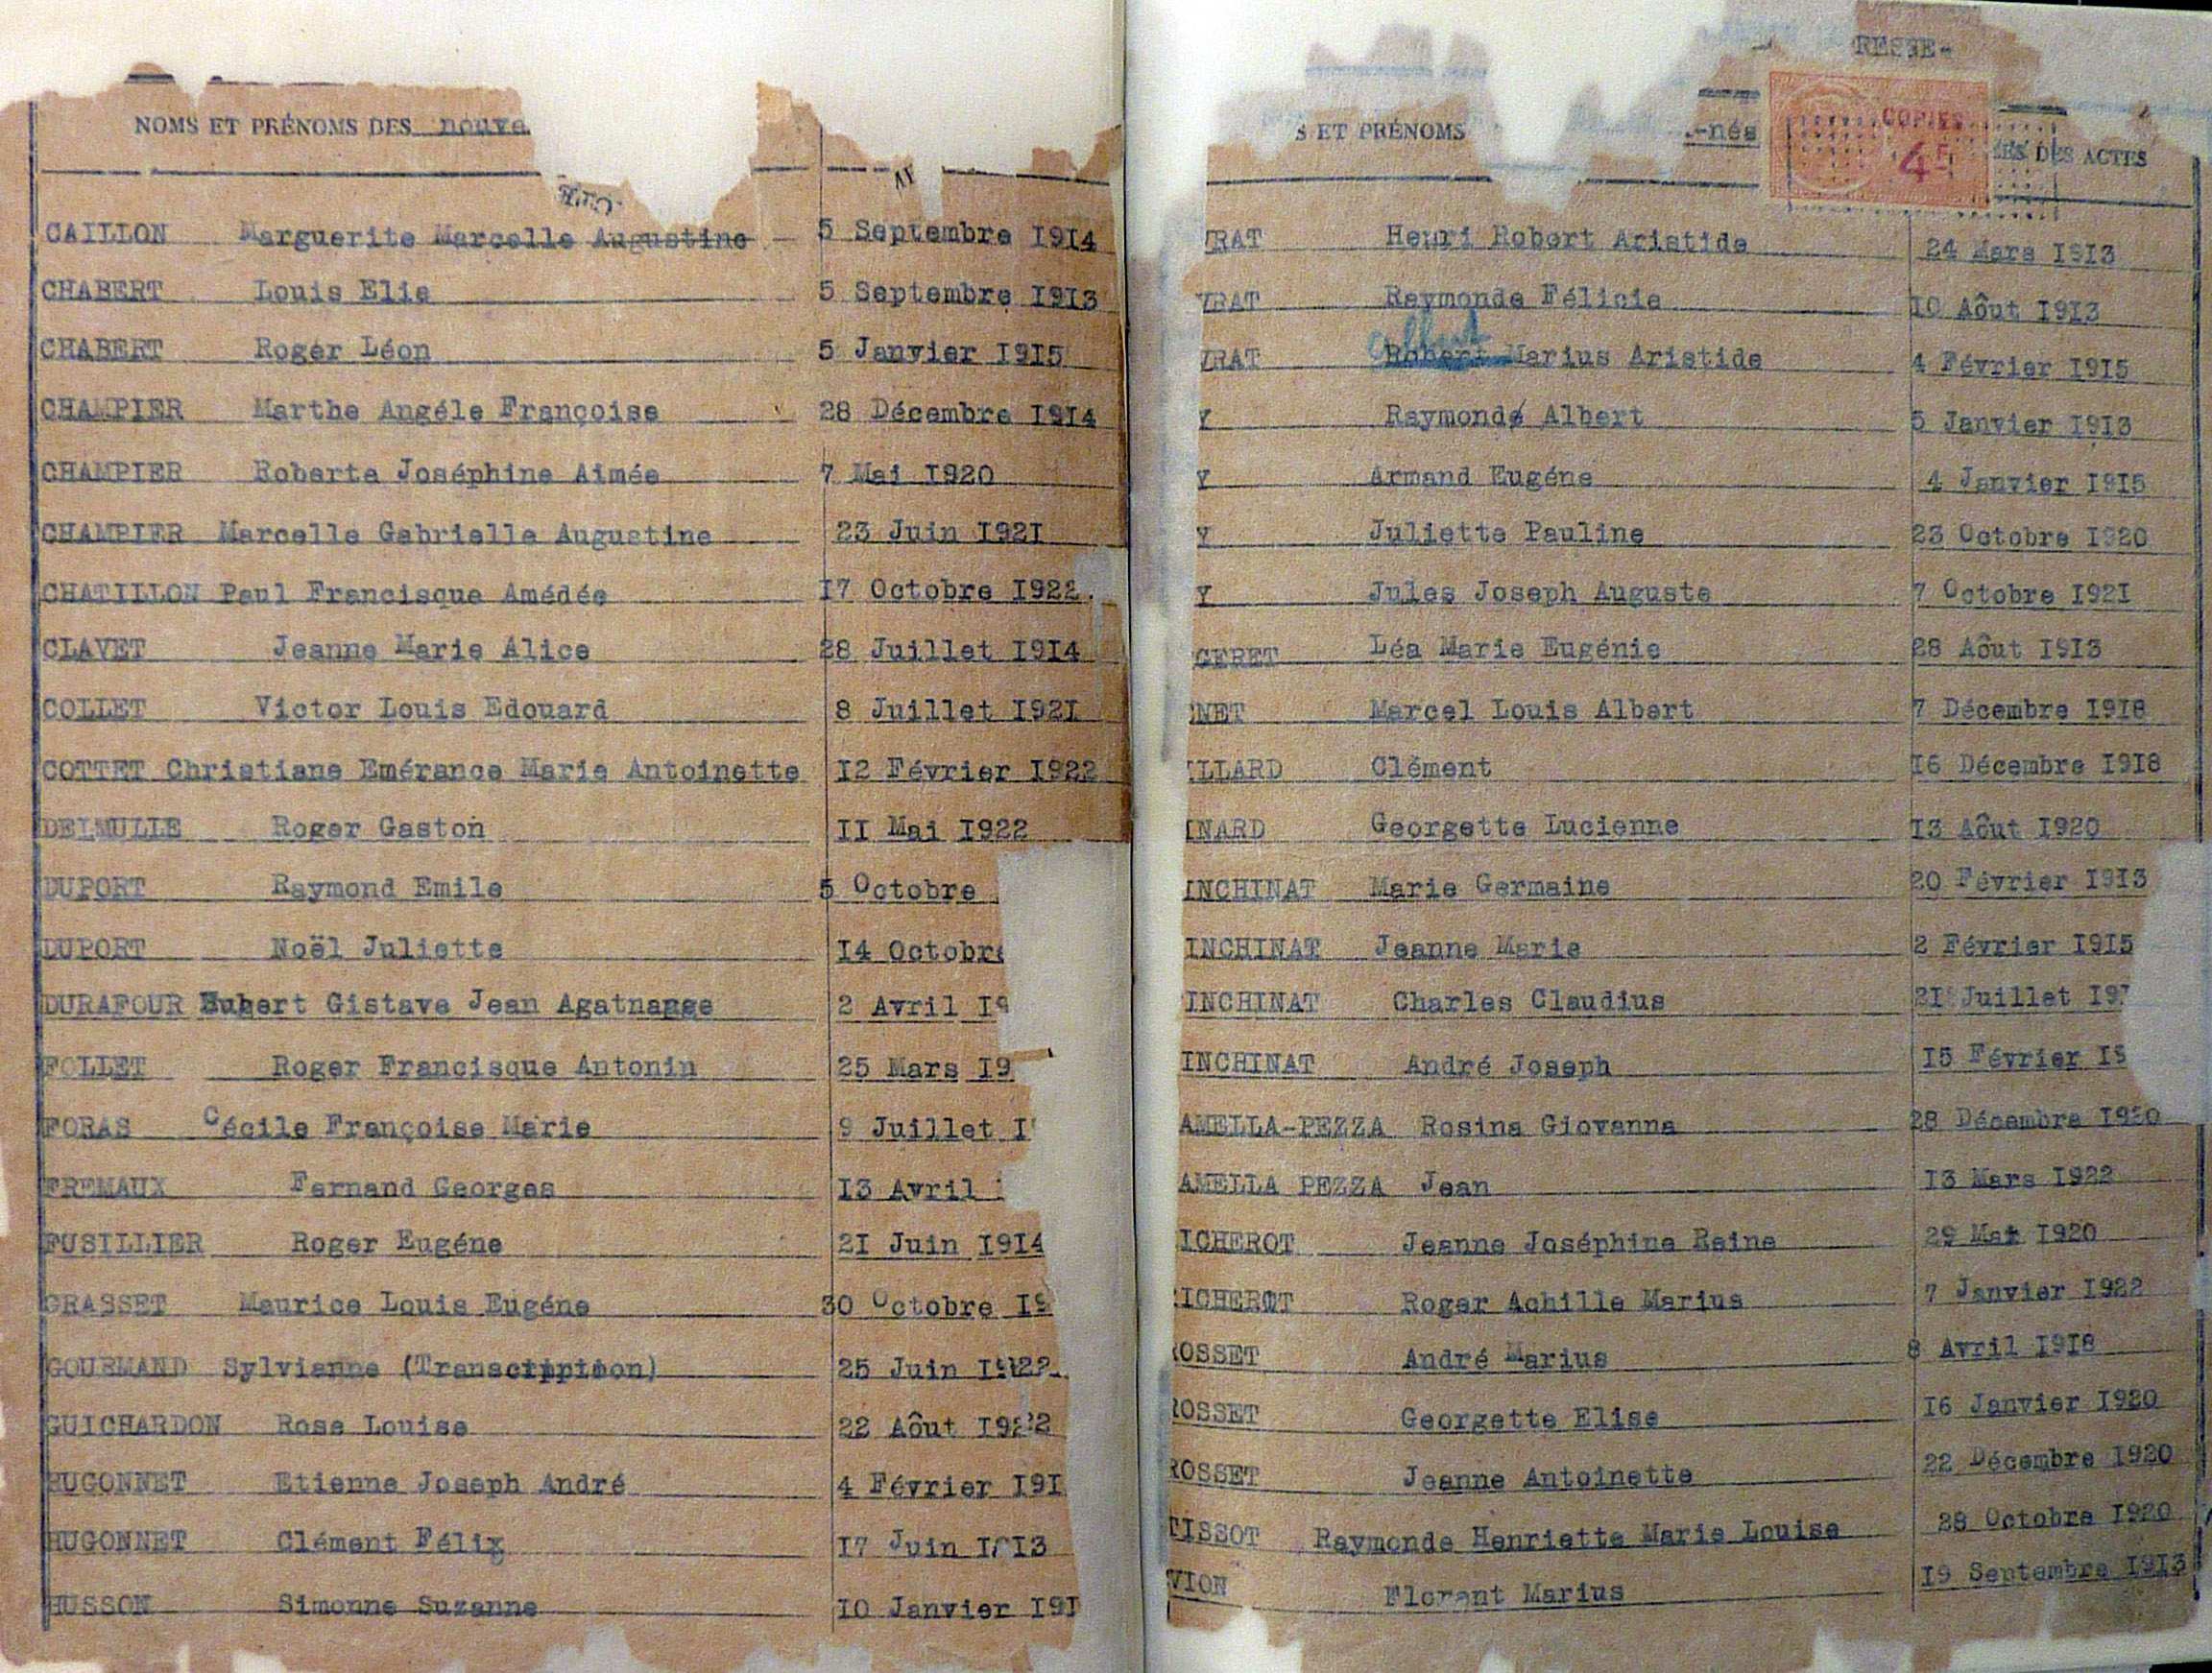 NOMS ET PRÉNOMS DES nouve
CAILLON Marguerite Marcelle Augustine 5 Septembre 1914
CHABERT Louis Elie 5 Septembre 1913
CHABERT Roger Léon 5 Janvier 1915
CHAMPIER Marthe Angéle Françoise 28 Décembre 1914
CHAMPIER Roberte Joséphine Aimée 7 Mai 1920
CHAMPIER Marcelle Gabrielle Augustine 23 Juin 1921
CHATILLON Paul Francisque Amédée 17 Octobre 1922
CLAVET Jeanne Marie Alice 28 Juillet 1914
COLLET Victor Louis Edouard 8 Juillet 1921
COTTET Christiane Emérance Marie Antoinette 12 Février 1922
DELMULLE Roger Gaston 11 Mai 1922
DUPORT Raymond Emile 5 Octobre
DUPORT Noël Juliette 14 Octobre
DURAFOUR Hubert Gistave Jean 2 Avril 19
FOLLET Roger Francisque Antonin 25 Mars 19
FORAS Cécile Françoise Marie 9 Juillet 1
FREMAUX Fernand Georges 13 Avril
FUSILLIER Roger Eugéne 21 Juin 1914
GRASSET Maurice Louis Eugéne 30 Octobre 19
GOURMAND Sylvianne (Transcription) 25 Juin 1922
GUICHARDON Rose Louise 22 Aôut 1922
HUGONNET Etienne Joseph André 4 Février 191
HUGONNET Clément Félix 17 Juin 1913
HUSSON Simonne Suzanne 10 Janvier 191
RESSE-
S ET PRÉNOMS -nés COPIES 4F ES DES ACTES
VRAT Henri Robert Aristide 24 Mars 1913
VRAT Raymonde Félicie 10 Aôut 1913
Albert
VRAT Robert Marius Aristide 4 Février 1915
Y Raymonde Albert 5 Janvier 1913
Y Armand Eugéne 4 Janvier 1915
Y Juliette Pauline 23 Octobre 1920
Y Jules Joseph Auguste 7 Octobre 1921
GERET Léa Marie Eugénie 28 Aôut 1913
NET Marcel Louis Albert 7 Décembre 1918
ILLARD Clément 16 Décembre 1918
INARD Georgette Lucienne 13 Aôut 1920
INCHINAT Marie Germaine 20 Février 1913
INCHINAT Jeanne Marie 2 Février 1915
INCHINAT Charles Claudius 21 Juillet 19
INCHINAT André Joseph 15 Février 19
AMELLA-PEZZA Rosina Giovanna 28 Décembre 1920
AMELLA PEZZA Jean 13 Mars 1922
ICHEROT Jeanne Joséphine Reine 29 Mai 1920
ICHEROT Roger Achille Marius 7 Janvier 1922
ROSSET André Marius 8 Avril 1918
ROSSET Georgette Elise 16 Janvier 1920
ROSSET Jeanne Antoinette 22 Décembre 1920
TISSOT Raymonde Henriette Marie Louise 28 Octobre 1920
VION Florent Marius 19 Septembre 1913